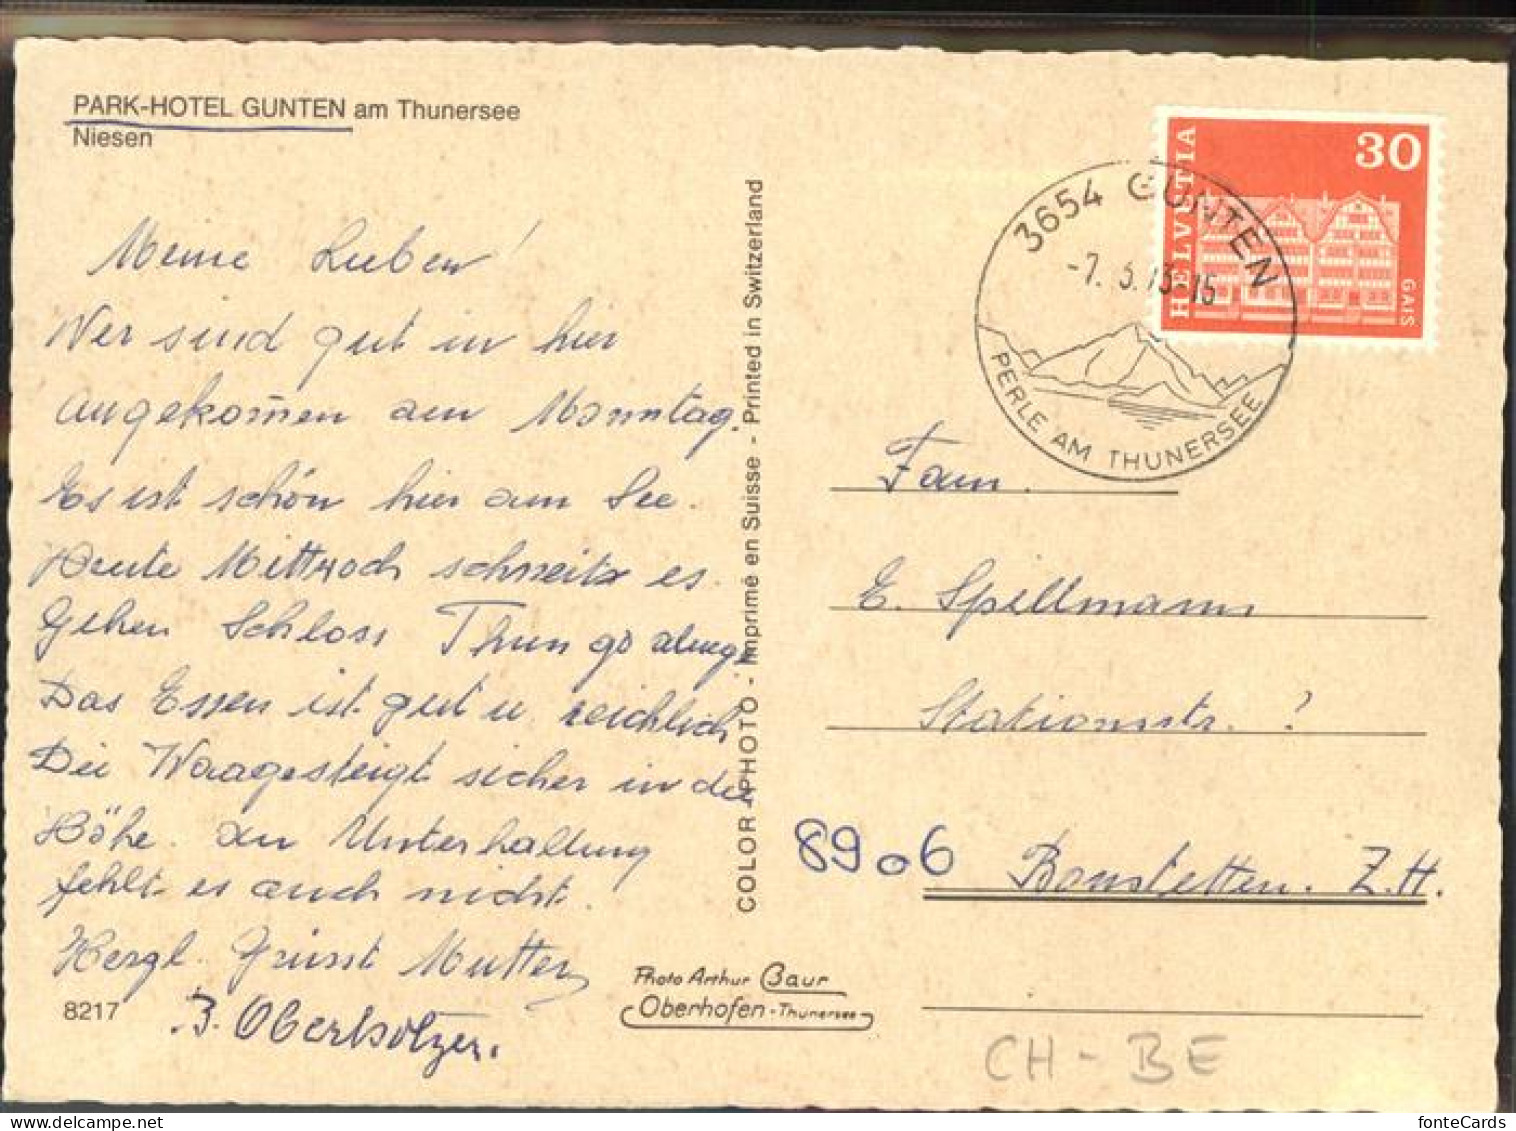 PARK-HOTEL GUNTEN am Thunersee
Niesen
Meine Lieben!
Wir sind gut in hier
angekom̅en am Monntag.
Es ist schön hier am See.
Heute Mittwoch schneits es.
Gehen Schloss Thun go
Das Essen ist gut u. reichlich
Die Waagesteigt sicher in die
Höhe. an Unterhaltung
fehlt es auch nicht.
Herzl. Grüsst Mutter
B. Oberholzer.
8217
COLOR PHOTO - Imprimé en Suisse - Printed in Switzerland
Photo Arthur Baur
Oberhofen - Thunersee
HELVETIA
30
GAIS
3654 GUNTEN
-7. 3. 73-15
PERLE AM THUNERSEE
Fam.
E. Spillmann
Stationsstr. ?
8906 Bonstetten. Z.H.
CH - BE
fonteCards